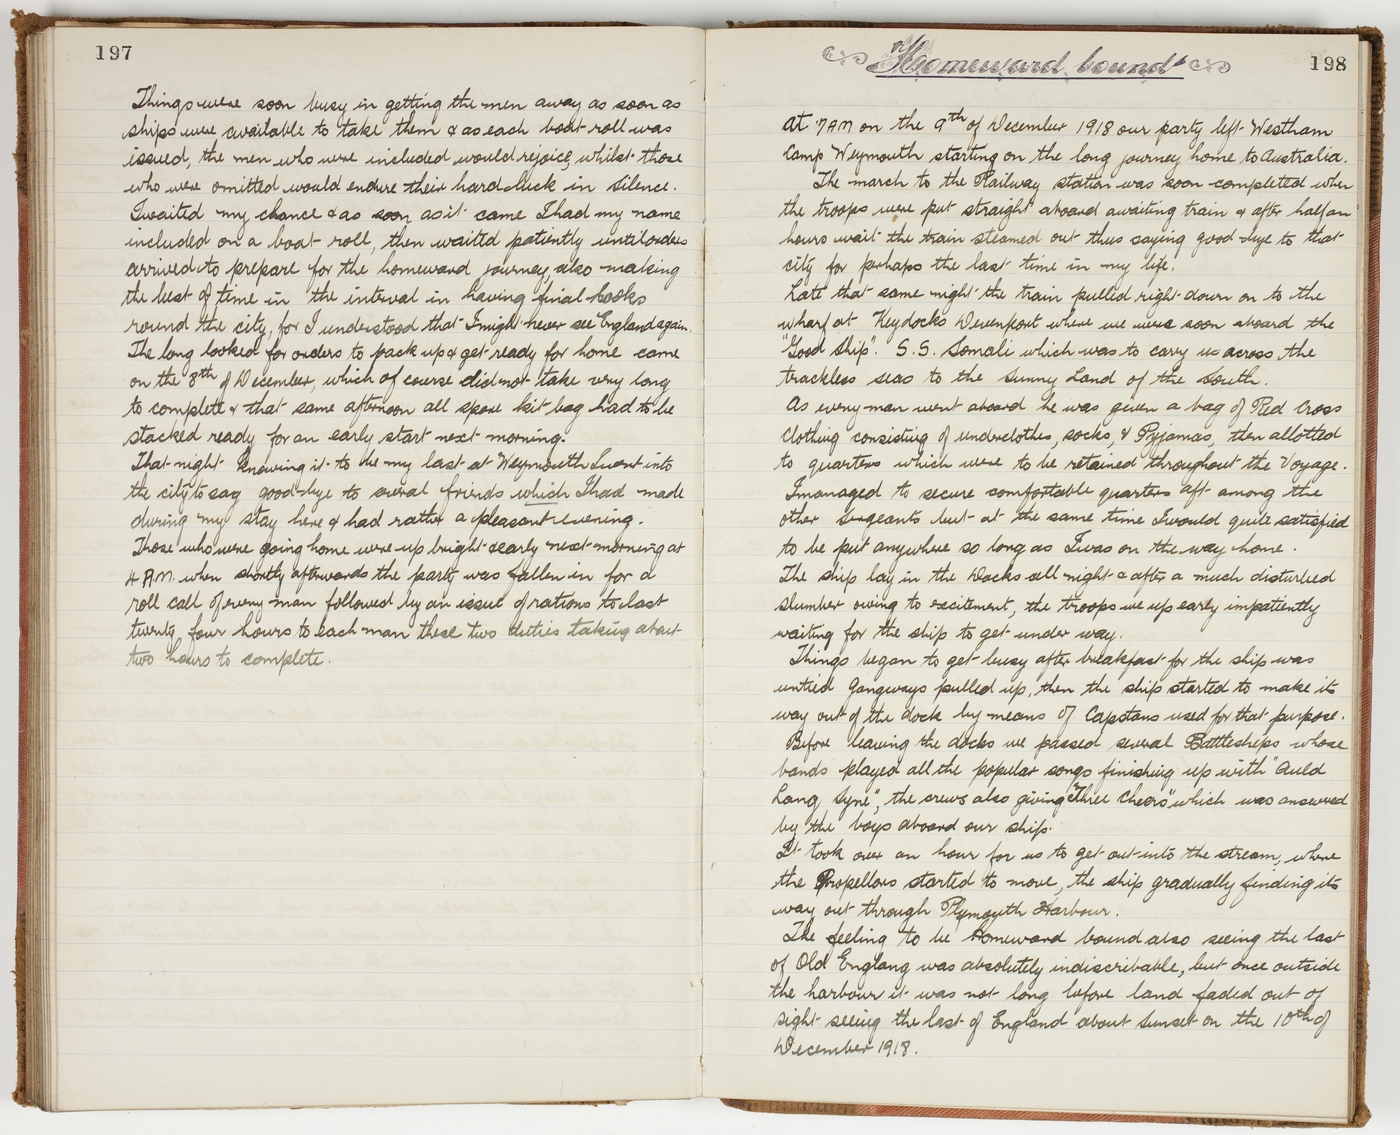 197
Things were soon busy in getting the men away as soon as
ships were available to take them & as each boat-roll was
issued, the men who were included would rejoice, whilst those
who were omitted would endure their hard-luck in silence.
I waited my chance & as soon as it came I had my name
included on a boat-roll, then waited patiently until orders
arrived to prepare for the homeward journey, also making
the best of time in the interval in having final looks
round the city, for I understood that I might never see England again.
The long looked for orders to pack up & get ready for home came
on the 8th of December, which of course did not take very long
to complete & that same afternoon all spare kit bag had to be
stacked ready for an early start next morning.
That night knowing it to be my last at Weymouth I went into
the city to say good-bye to several friends which I had made
during my stay here & had rather a pleasant evening.
Those who were going home were up bright & early next morning at
4 A.M. when shortly afterwards the party was fallen in for a
roll call of every man followed by an issue of rations to last
twenty four hours to each man these two duties taking about
two hours to complete.
"Homeward bound"
198
At 7 AM on the 9th of December 1918 our party left Westham
Camp Weymouth starting on the long journey home to Australia.
The march to the Railway station was soon completed when
the troops were put straight aboard awaiting train & after half an
hours wait the train steamed out thus saying good-bye to that
city for perhaps the last time in my life.
Late that same night the train pulled right down on to the
wharf at Keydocks Devenport where we were soon aboard the
"Good Ship". S.S. Somali which was to carry us across the
trackless seas to the Sunny Land of the South.
As every man went aboard he was given a bag of Red Cross
Clothing consisting of underclothes, socks, & Pyjamas, then allotted
to quarters which were to be retained throughout the Voyage.
I managed to secure comfortable quarters aft among the
other sergeants but at the same time I would quite satisfied
to be put anywhere so long as I was on the way home.
The ship lay in the Docks all night & after a much disturbed
slumber owing to excitement, the troops we up early impatiently
waiting for the ship to get under way.
Things began to get busy after breakfast for the ship was
untied gangways pulled up, then the ship started to make its
way out of the dock by means of Capstans used for that purpose.
Before leaving the docks we passed several Battleships whose
bands played all the popular songs finishing up with "Auld
Lang Syne", the crews also giving "Three Cheers" which was answered
by the boys aboard our ship.
It took over an hour for us to get out into the stream, where
the Propellors started to move, the ship gradually finding its
way out through Plymouth Harbour.
The feeling to be Homeward bound also seeing the last
of Old Englang was absolutely indiscribable, but once outside
the harbour it was not long before land faded out of
sight seeing the last of England about Sunset on the 10th of
December 1918.